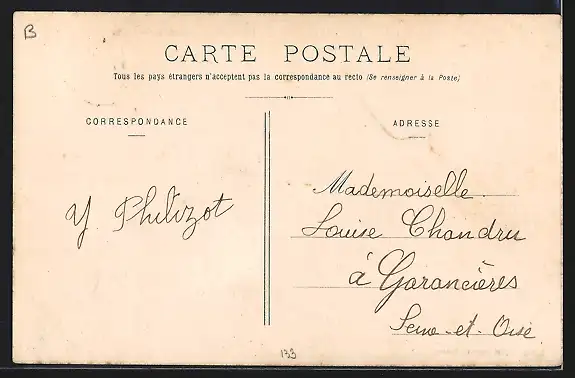 B
CARTE POSTALE
Tous les pays étrangers n'acceptent pas la correspondance au recto (Se renseigner à la Poste)
CORRESPONDANCE
Y. Philizot
ADRESSE
Mademoiselle
Louise Chandru
à Garancières
Seine-et-Oise
133